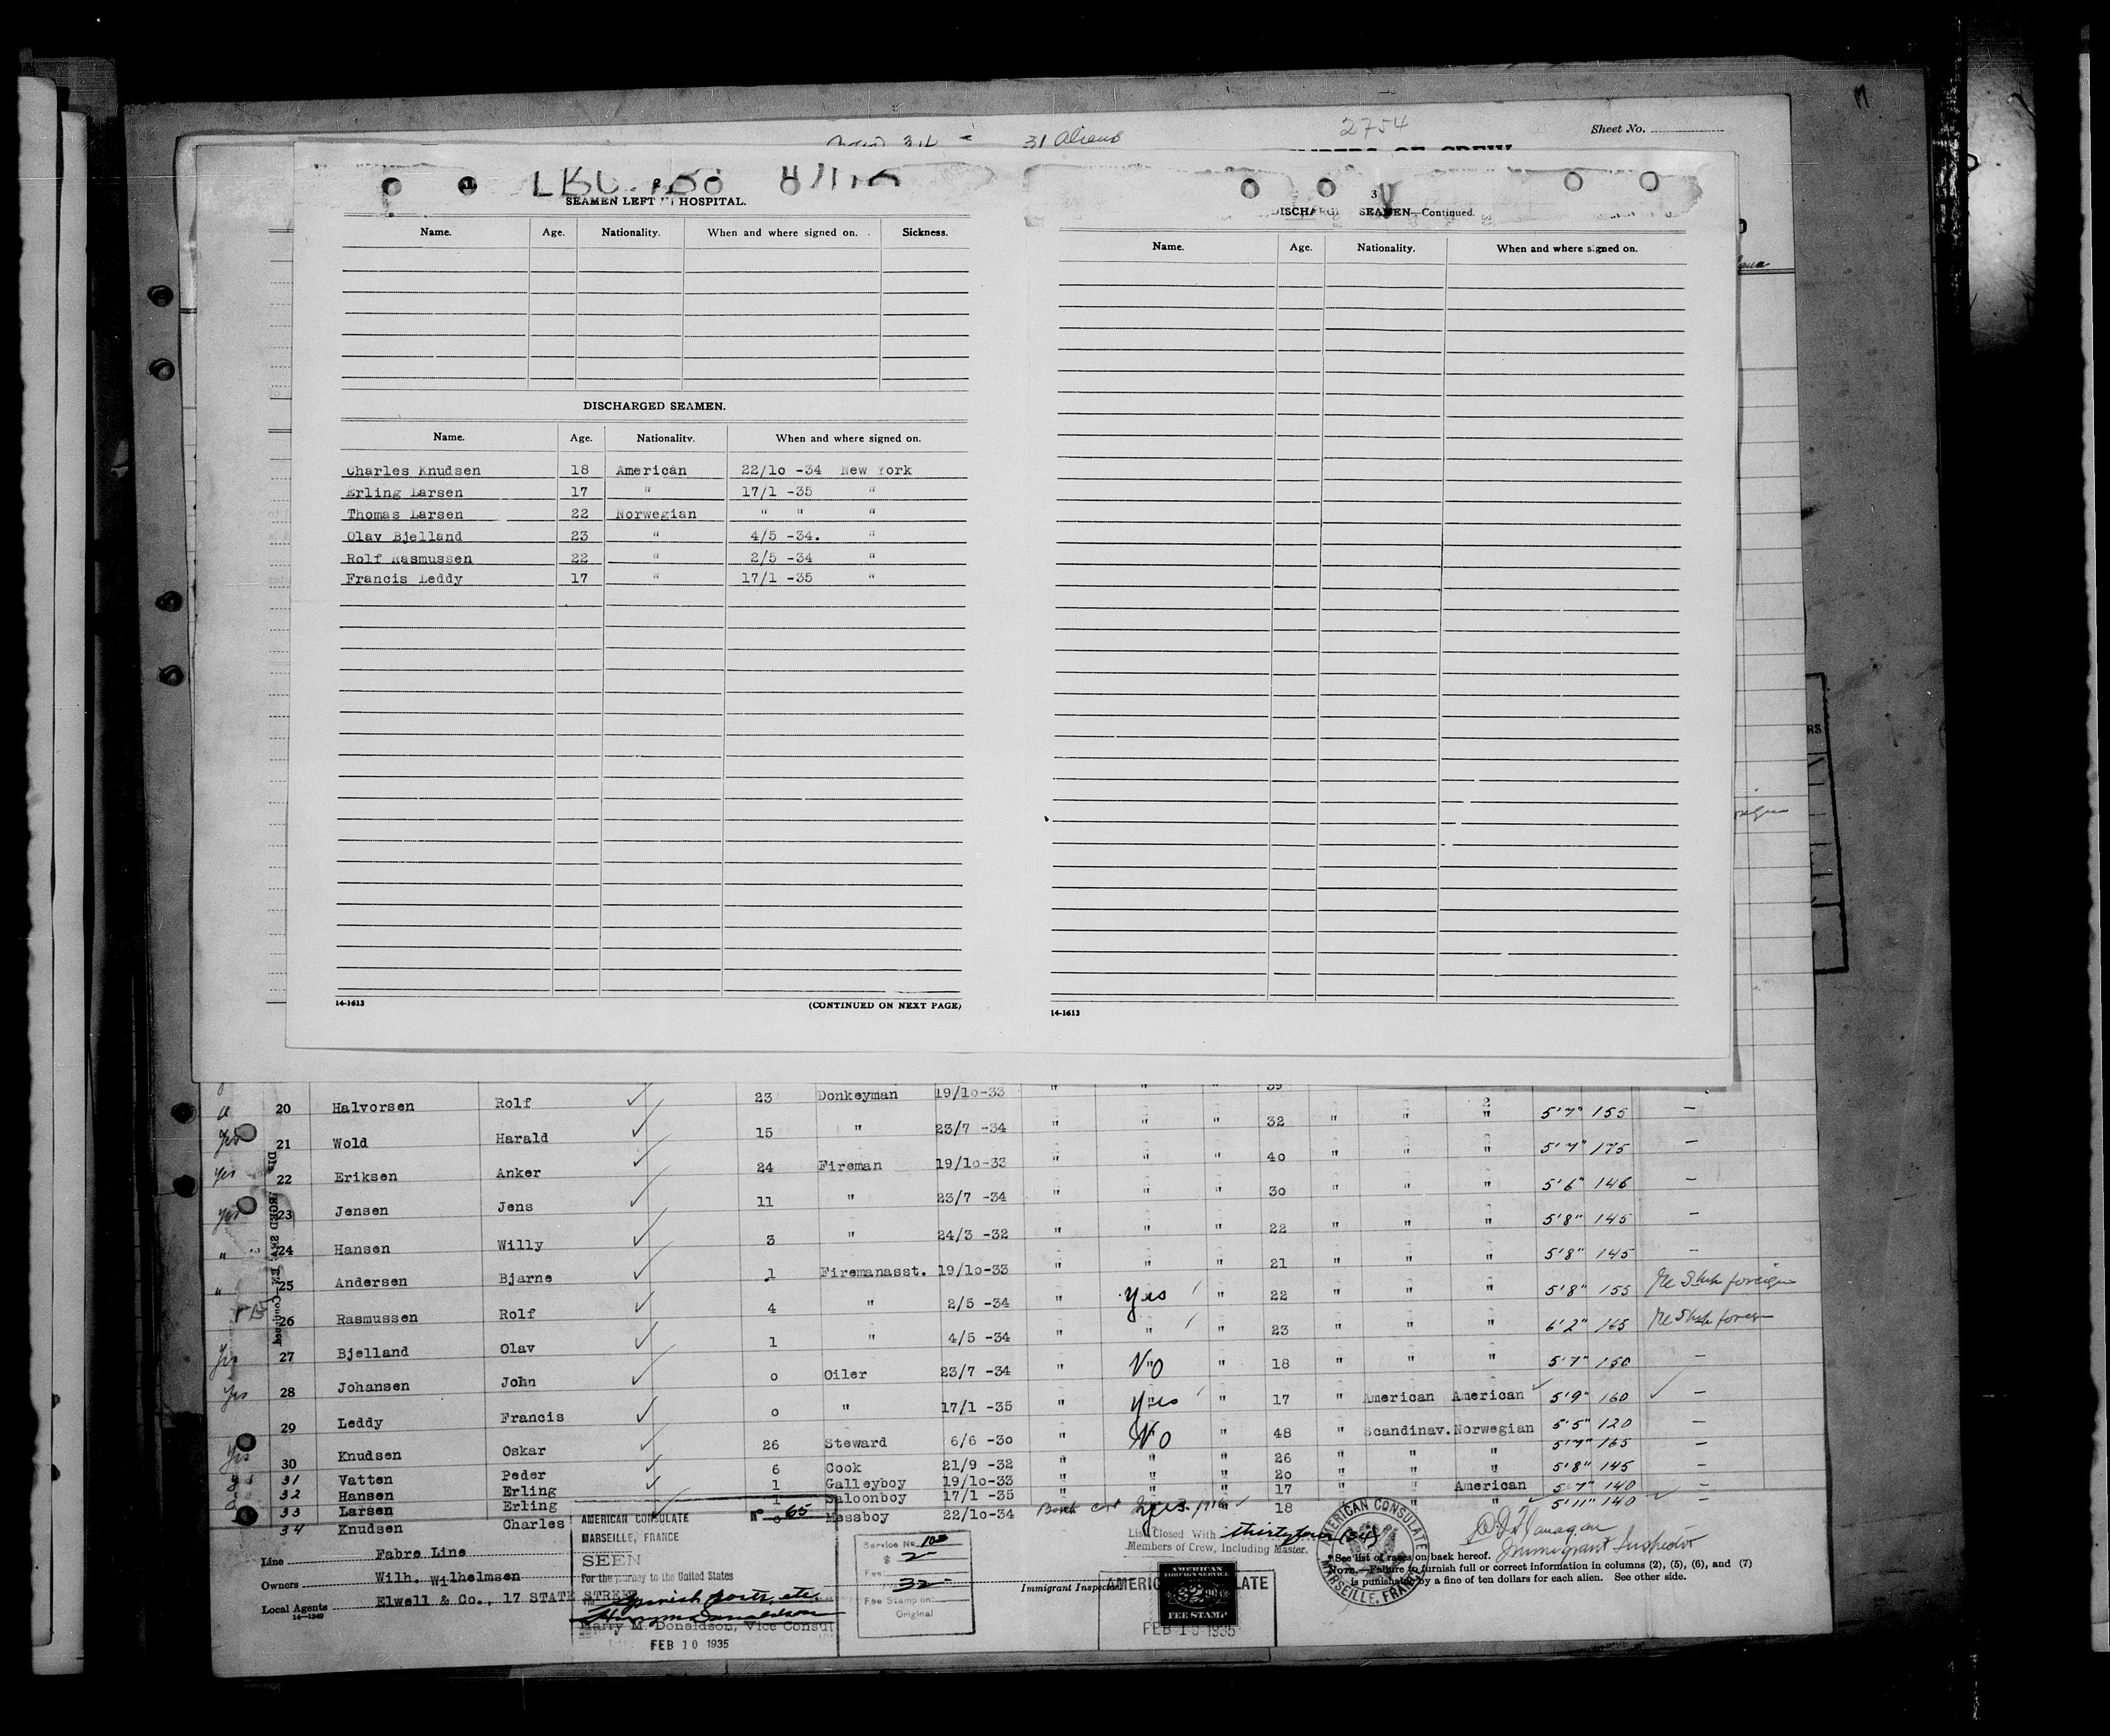 31 Aliens
2754
Sheet No.
SEAMEN LEFT HOSPITAL.
Name. Age. Nationality. When and where signed on. Sickness.
DISCHARGED SEAMEN.
Name. Age. Nationality. When and where signed on.
Charles Knudsen 18 American 22/10 -34 New York
Erling Larsen 17 " 17/1 -35 "
Thomas Larsen 22 Norwegian " " "
Olav Bjelland 23 " 4/5 -34. "
Rolf Rasmussen 22 " 2/5 -34 "
Francis Leddy 17 " 17/1 -35 "
14-1613 (CONTINUED ON NEXT PAGE)
3
SEAMEN—Continued.
Name. Age. Nationality. When and where signed on.
14-1613
20 Halvorsen Rolf 23 Donkeyman 19/10-33 " " " 32 " " " 5'7" 155 —
yes 21 Wold Harald 15 " 23/7 -34 " " " 40 " " " 5'7" 175 —
yes 22 Eriksen Anker 24 Fireman 19/10-33 " " " 30 " " " 5'6" 146 —
yes 23 Jensen Jens 11 " 23/7 -34 " " " 22 " " " 5'8" 145 —
" 24 Hansen Willy 3 " 24/3 -32 " " " 21 " " " 5'8" 145 —
" 25 Andersen Bjarne 1 Firemanasst. 19/10-33
26 Rasmussen Rolf 4 " 2/5 -34 " yes " 22 " " " 5'8" 155 foreign
27 Bjelland Olav 1 " 4/5 -34 " " " 23 " " " 6'2" 165
yes 28 Johansen John 0 Oiler 23/7 -34 " No " 18 " " " 5'7" 150 —
29 Leddy Francis 0 " 17/1 -35 " yes " 17 " American American 5'9" 160 —
yes 30 Knudsen Oskar 26 Steward 6/6 -30 " No " 48 " Scandinav. Norwegian 5'5" 120 —
31 Vatten Peder 6 Cook 21/9 -32 " " " 26 " " " 5'7" 165 —
32 Hansen Erling 1 Galleyboy 19/10-33 " " " 20 " " " 5'8" 145 —
33 Larsen Erling 1 Saloonboy 17/1 -35 " " " 17 " " American 5'7" 140 —
34 Knudsen Charles 0 Messboy 22/10-34 yes " 18 " " " 5'11" 140 —
Line Fabre Line
Owners Wilh. Wilhelmsen
Local Agents Elwell & Co., 17 STATE STREET
14-1240
No 65
AMERICAN CONSULATE
MARSEILLE, FRANCE
SEEN
For the journey to the United States
Spanish ports, etc.
Harry M. Donaldson, Vice Consul
FEB 10 1935
Service No. 100
$ 2
Fee
32
Fee Stamp on
Original
List Closed With thirtyfour (34)
Members of Crew, Including Master.
Immigrant Inspector
AMERICAN
FOREIGN SERVICE
FEE STAMP
FEB 10 1935
AMERICAN CONSULATE
MARSEILLE, FRANCE
Immigrant Inspector
*See list of races on back hereof.
NOTE.—Failure to furnish full or correct information in columns (2), (5), (6), and (7)
is punishable by a fine of ten dollars for each alien. See other side.